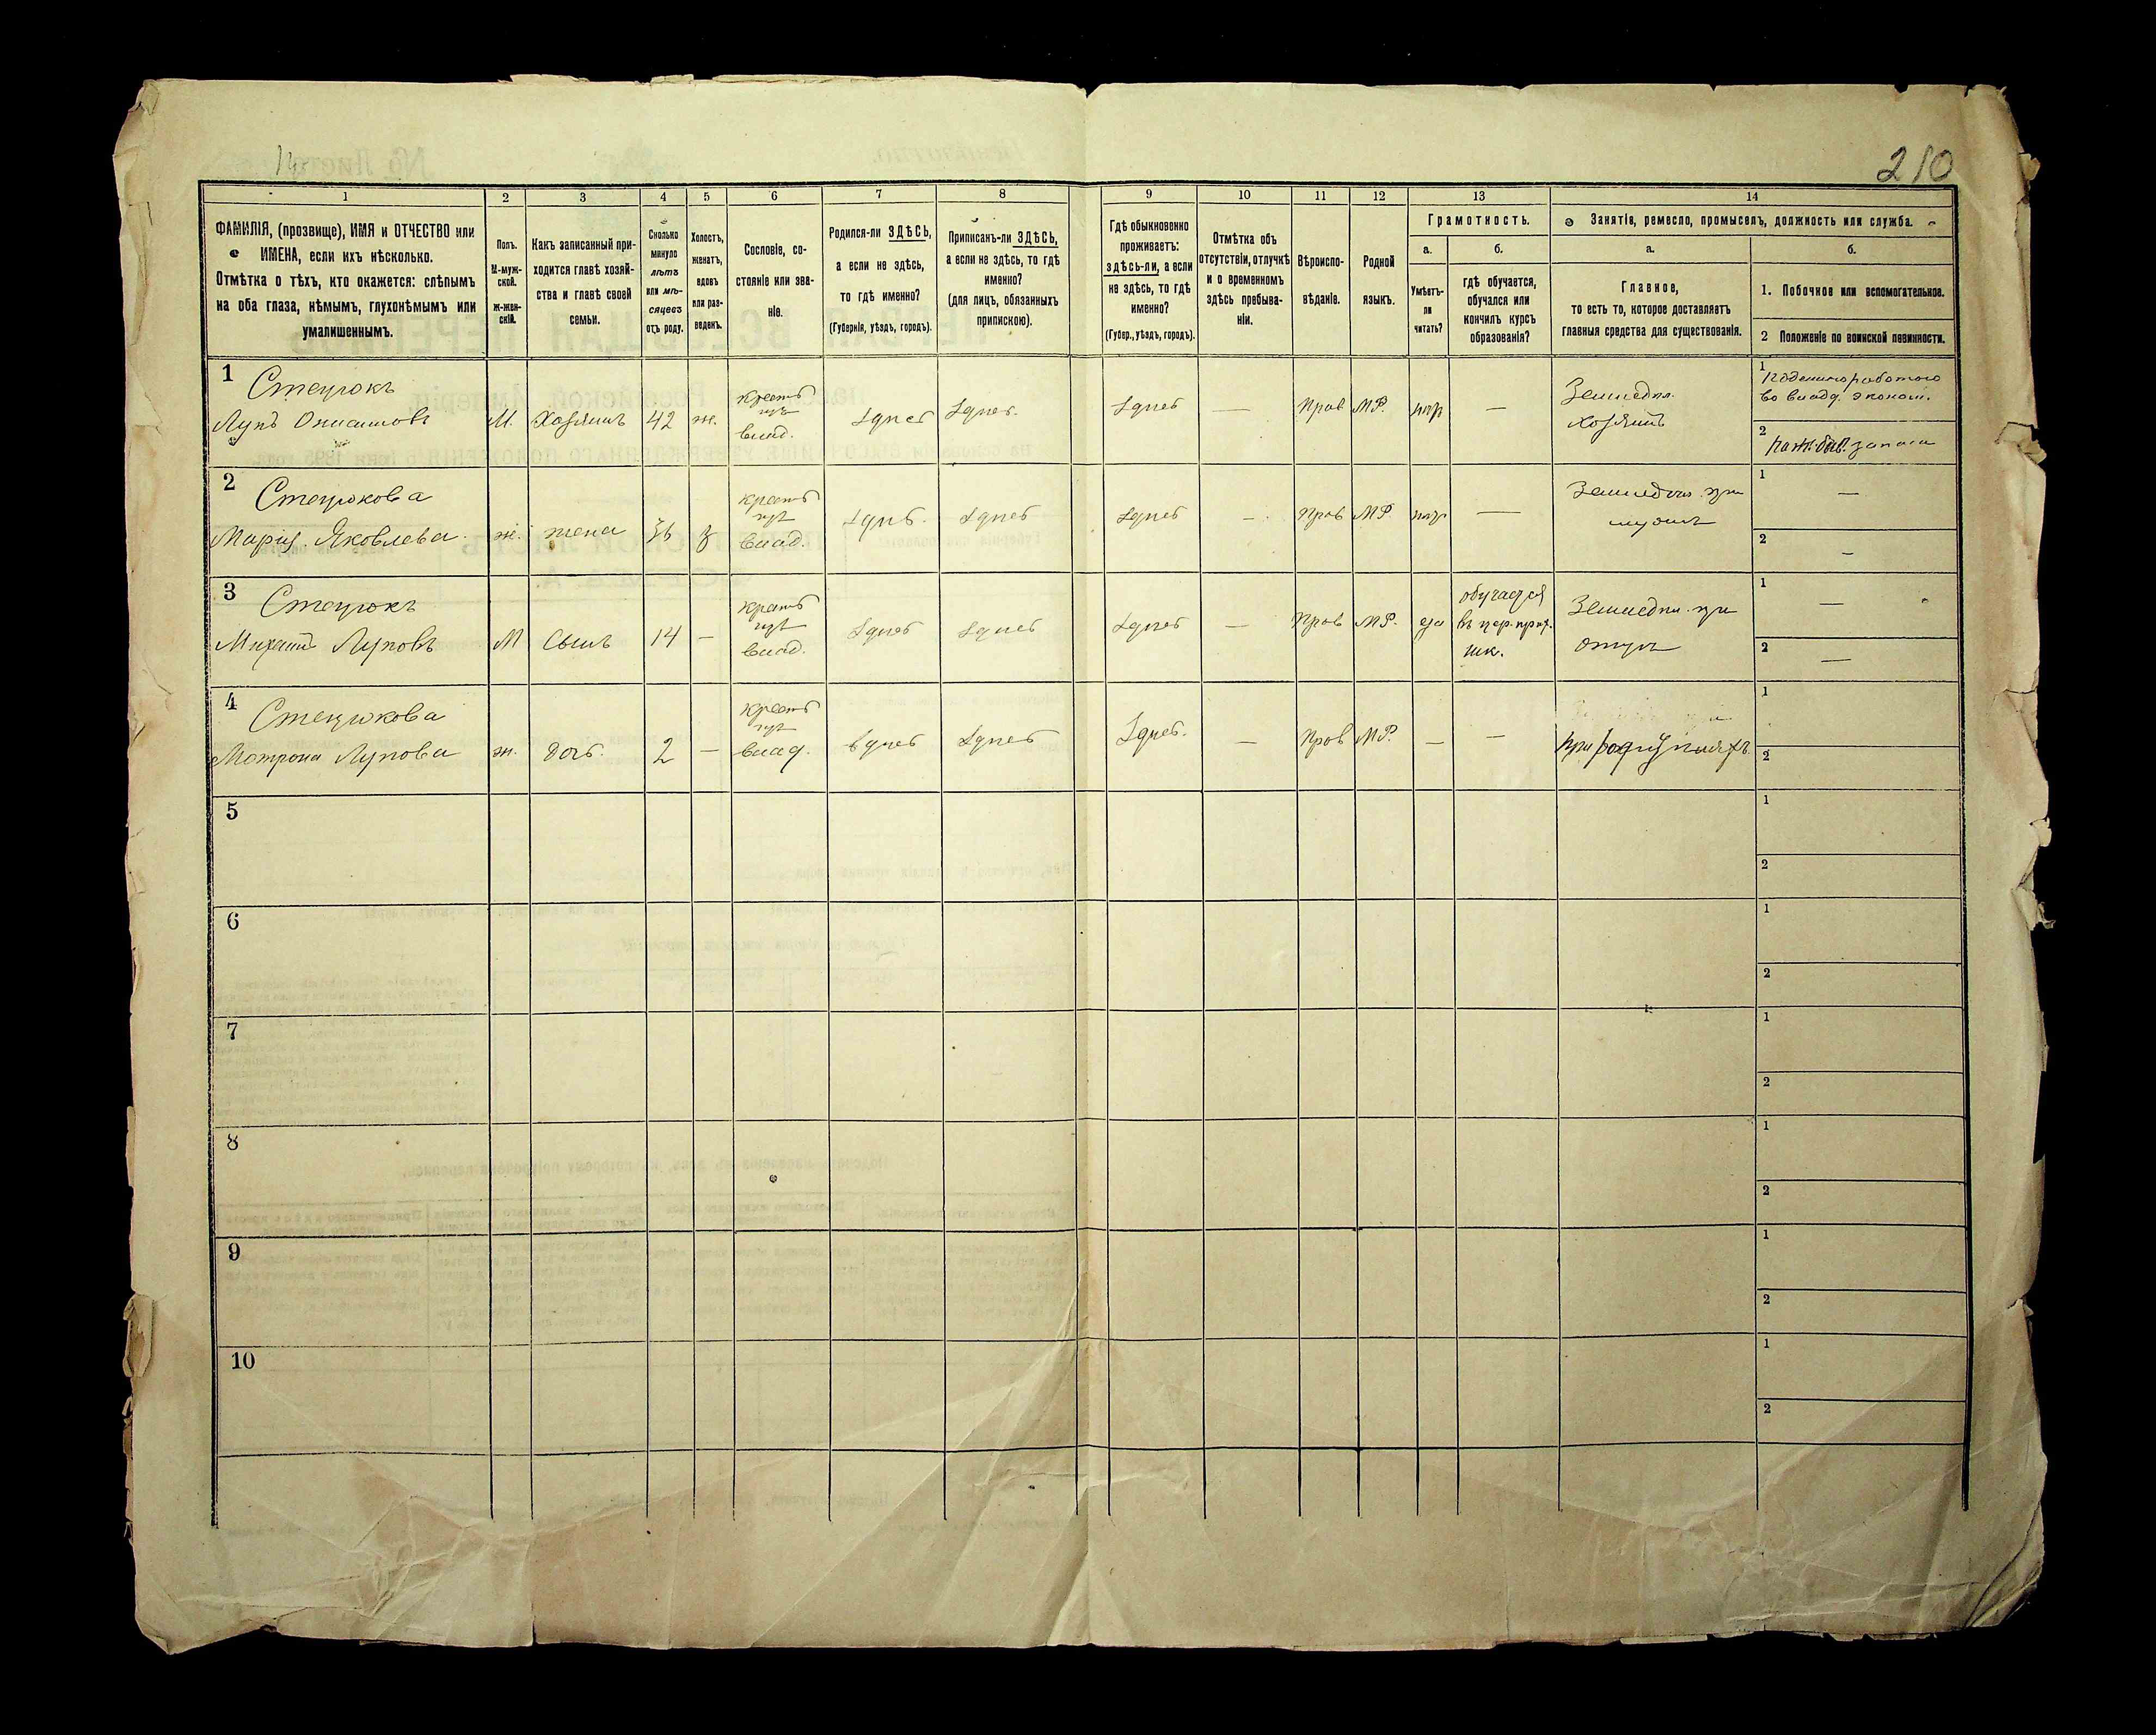 210
1
2
3
4
5
6
7
8
9
10
11
12
13
14
ФАМИЛІЯ, (прозвище), ИМЯ и ОТЧЕСТВО или
ИМЕНА, если ихъ нѣсколько.
Отмѣтка о тѣхъ, кто окажется: слѣпымъ
на оба глаза, нѣмымъ, глухонѣмымъ или
умалишеннымъ.
Полъ.
М-муж-
ской.
ж-жен-
скій.
Какъ записанный при-
ходится главѣ хозяй-
ства и главѣ своей
семьи.
Сколько
минуло
лѣтъ
или мѣ-
сяцевъ
отъ роду.
Холостъ,
женатъ,
вдовъ
или раз-
веденъ.
Сословіе, со-
стояніе или зва-
ніе.
Родился-ли ЗДѢСЬ,
а если не здѣсь,
то гдѣ именно?
(Губернія, уѣздъ, городъ).
Приписанъ-ли ЗДѢСЬ,
а если не здѣсь, то гдѣ
именно?
(для лицъ, обязанныхъ
припискою).
Гдѣ обыкновенно
проживаетъ:
здѣсь-ли, а если
не здѣсь, то гдѣ
именно?
(Губер., уѣздъ, городъ).
Отмѣтка объ
отсутствіи, отлучкѣ
и о временномъ
здѣсь пребыва-
ніи.
Вѣроиспо-
вѣданіе.
Родной
языкъ.
Грамотность.
а.
Умѣетъ-
ли
читать?
б.
гдѣ обучается,
обучался или
кончилъ курсъ
образованія?
Занятія, ремесло, промыселъ, должность или служба.
а.
Главное,
то есть то, которое доставляетъ
главныя средства для существованія.
б.
1. Побочное или вспомогательное.
2 Положеніе по воинской повинности.
1
Стецюкъ
Лупъ
М.
Хозяинъ
42
ж.
крест
влад.
здѣсь
здѣсь.
здѣсь
—
Прав
МР.
нѣт
—
Земледѣл.
Хозяинъ
1
во влад. эконом.
2
запаса
2
Стецюкова
Марія Яковлева.
ж.
жена
36
з
крест
влад.
здѣсь.
здѣсь
здѣсь
—
Прав
МР.
нѣт
—
Земледѣл. при
мужѣ
1 —
2 —
3
Стецюкъ
Михаилъ Луповъ
М
Сынъ
14
—
крест
влад.
здѣсь
здѣсь
здѣсь
—
Прав
МР.
да
обучается
въ цер. прих.
шк.
Земледѣл. при
отцѣ
1 —
2 —
4
Стецюкова
Мотрона Лупова
ж.
дочь.
2
—
крест
влад.
здѣсь
здѣсь
здѣсь.
—
Прав
МР.
—
—
при родителяхъ
1
2
5
1
2
6
1
2
7
1
2
8
1
2
9
1
2
10
1
2